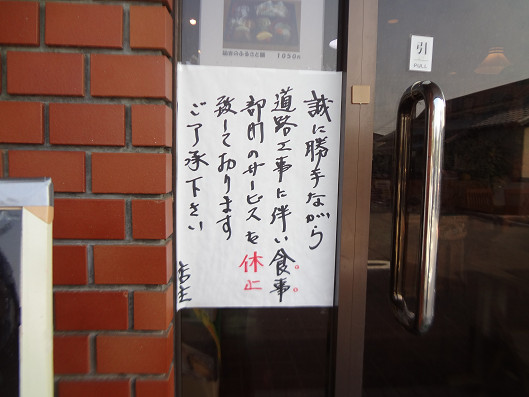 誠に勝手ながら
道路工事に伴い食事
部門のサービスを休止
致しております
ご了承下さい
店主
1050円
引
PULL